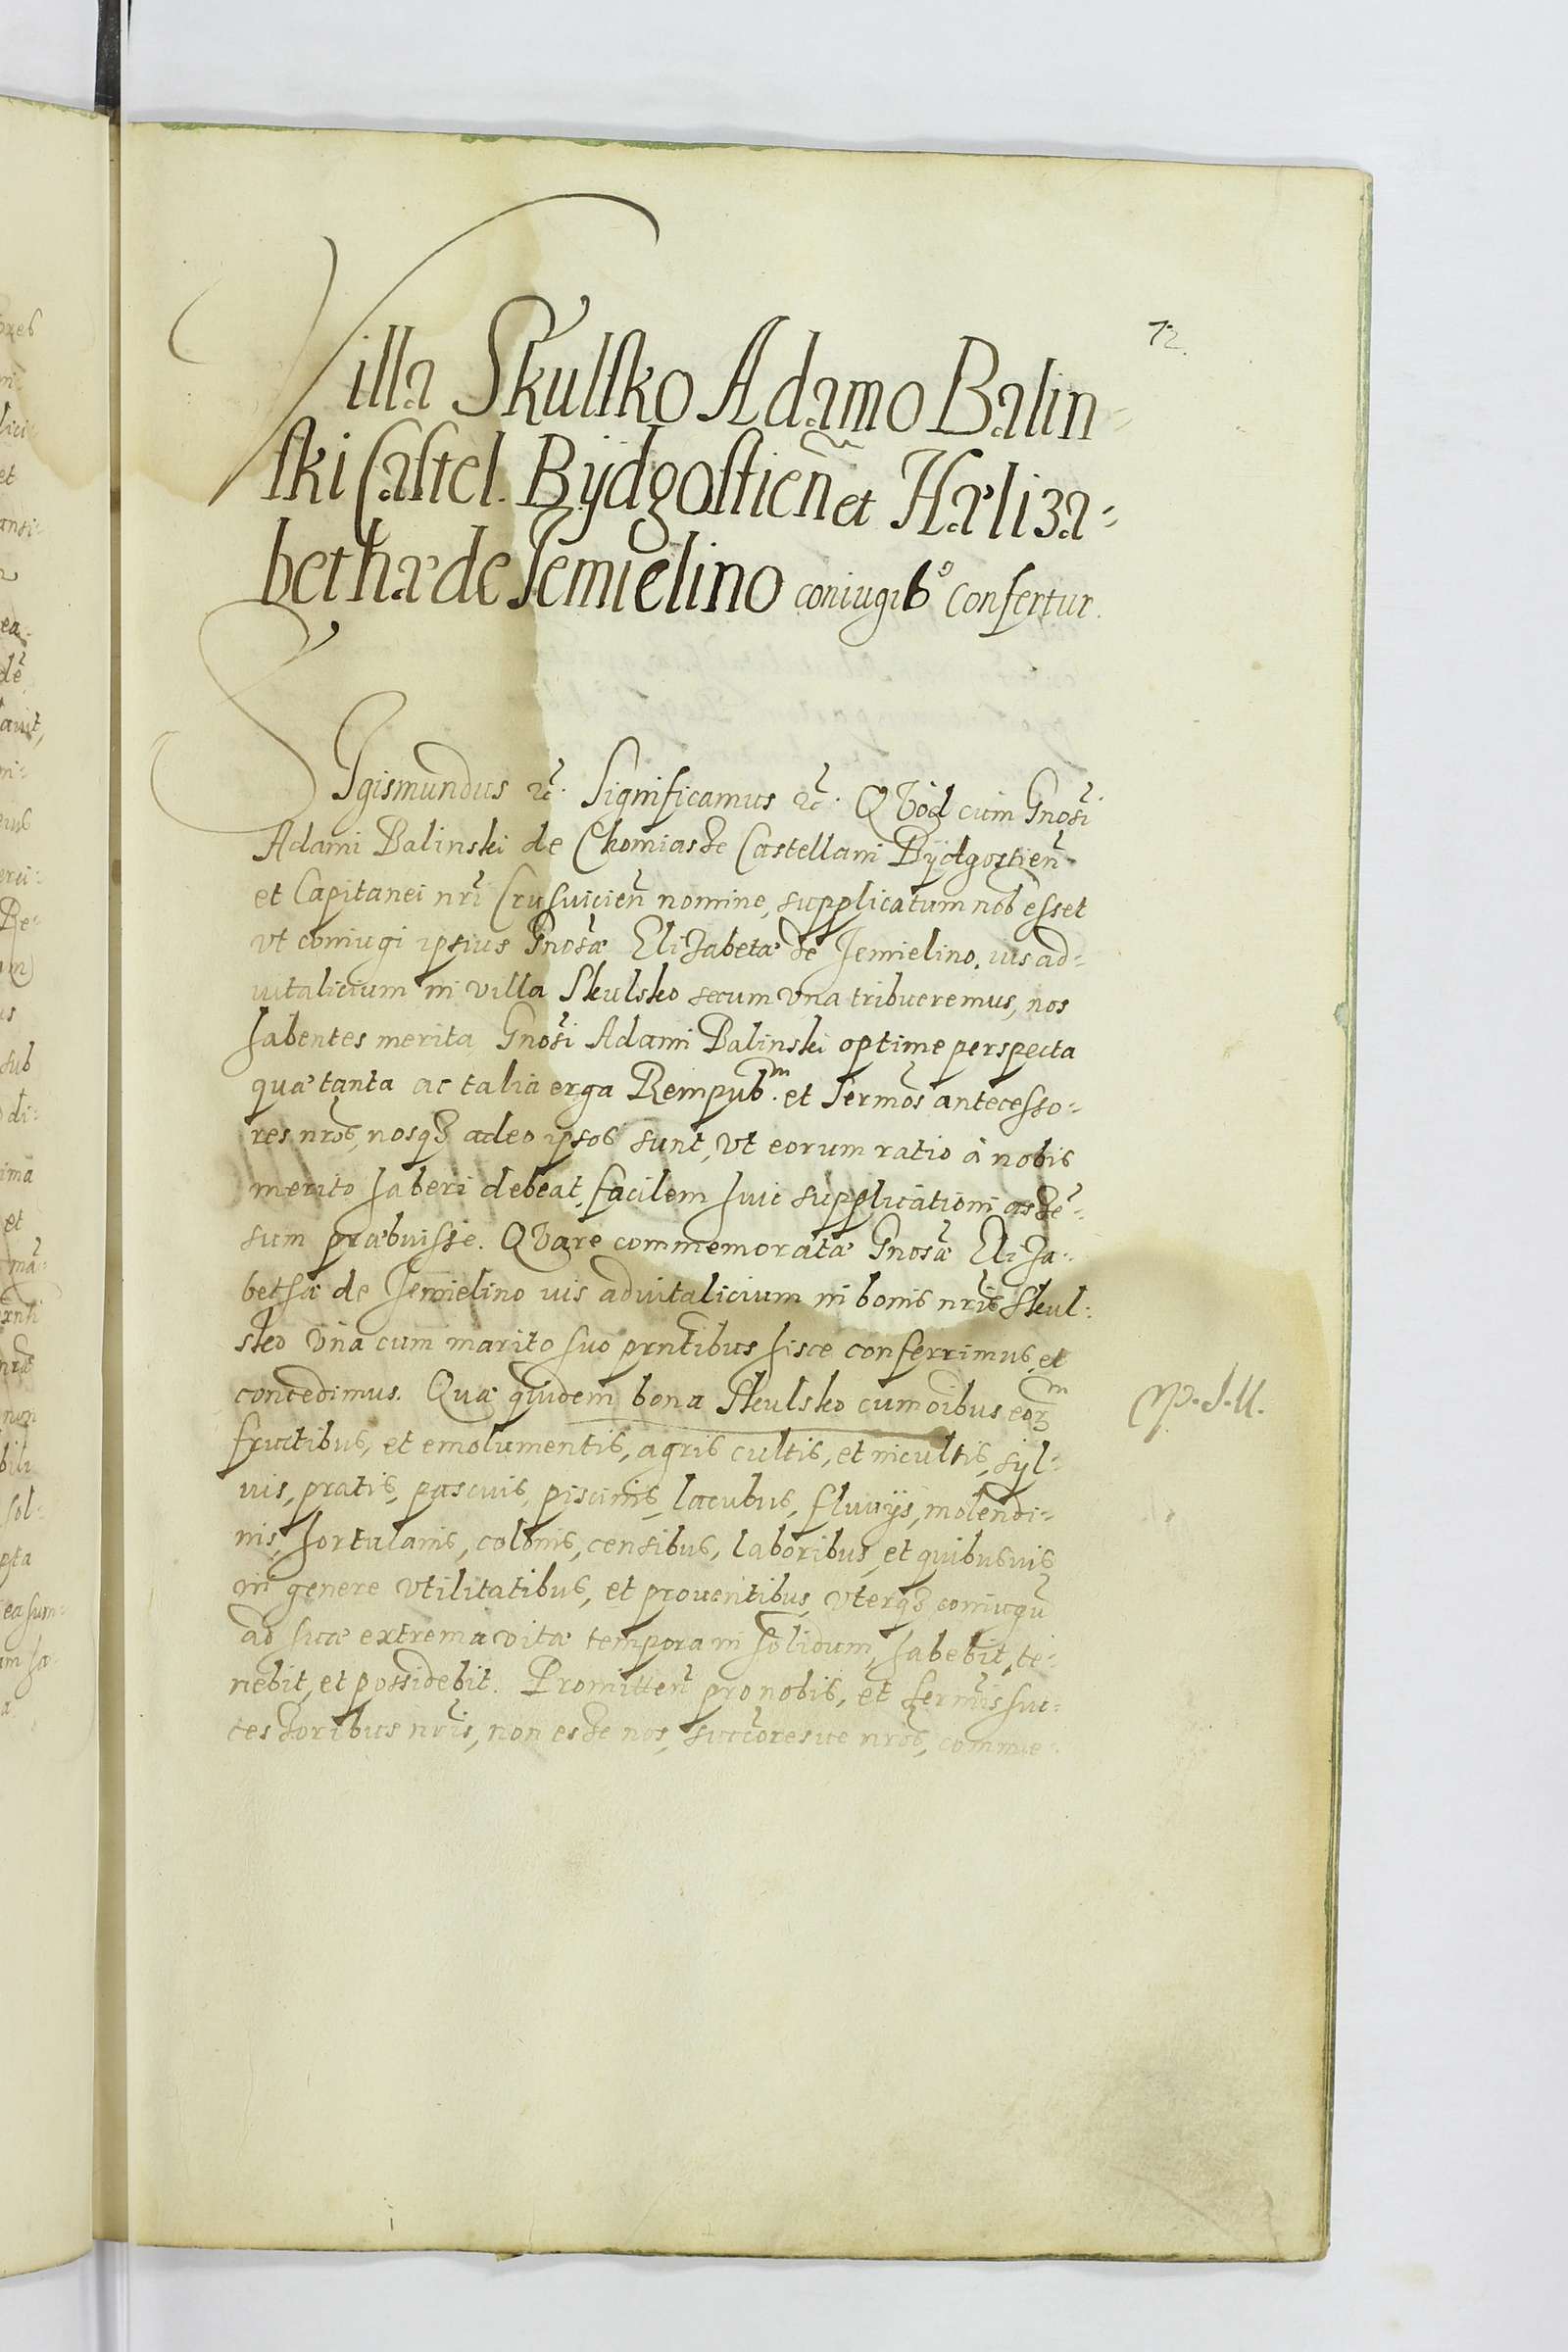 72.
Villa Skulsko Adamo Balin=
ski Castel. Bÿdgostien̄ et Hæliza=
bethæ de Jemielino coniugib⁹ confertur.
SIgismundus ꝛc̃. Significamus ꝛc̃. QVòd cum Gnosi
Adami Balinski de Chomiasde Castellani Bÿdgostien̄
et Capitanei nr̃i Crusuicien̄ nomine, supplicatum nob̃ esset
vt coniugi ipsius Gnosæ Elizabetæ de Jemielino, ius ad=
uitalicium in villa Skulsko secum vna tribueremus, nos
habentes merita Gnosi Adami Balinski optime perspecta
quæ tanta ac talia erga Rempubᵐ. et Sermos̃ antecesso=
res nr̃os, nosqꝫ adeo ipsos sunt, vt eorum ratio à nobis
merito haberi debeat, facilem huic supplicationi assẽ=
sum præbuisse. QVare commemoratæ Gnosæ Eliza=
bethæ de Jemielino ius aduitalicium in bonis nr̃is Skul=
sko vna cum marito suo prñtibus hisce conferrimus, et
concedimus. Quæ quidem bona Skulsko cum oĩbus eoꝝᵐ
fructibus, et emolumentis, agris cultis, et incultis, syl=
uis, pratis, pascuis, piscinis, lacubus, fluuijs, molendi=
nis, hortulanis, colonis, censibus, laboribus, et quibusuis
in genere vtilitatibus, et prouentibus, vterqꝫ coniugũ
ad suæ extrema vitæ tempora in solidum, habebit, te=
nebit, et possidebit. Promitten̄ pro nobis, et sermis̃ suc=
cessoribus nr̃is, non esse nos, succoresue nr̃os, commie=